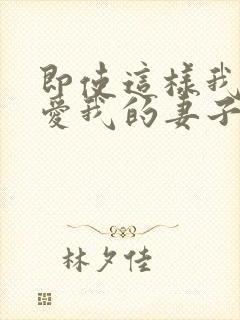 即使這樣我
愛我的妻子
林夕佳